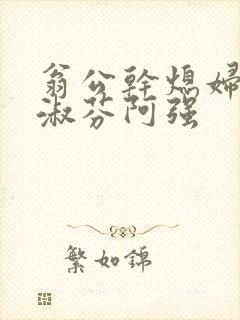 翁公幹熄婦
淑芬阿强
繁如錦